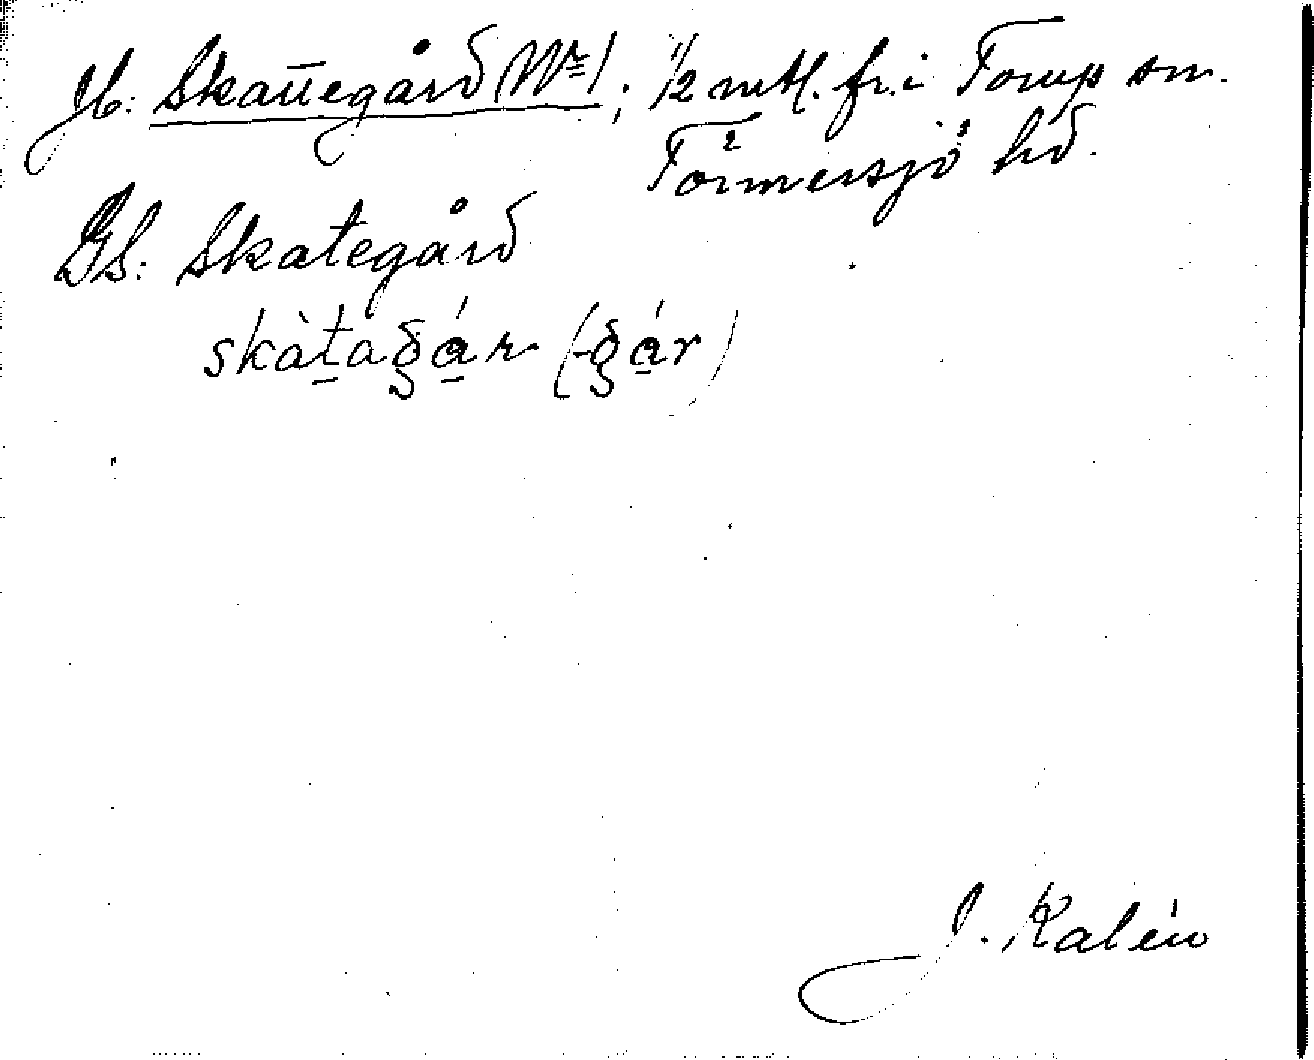 Jb: Skattegård Nr 1; 1/2 mtl. fr. i Torup sn.
Tönnersjö hd.
GS: Skategård
skàtag̨ár (-g̨ár)
J. Kalén